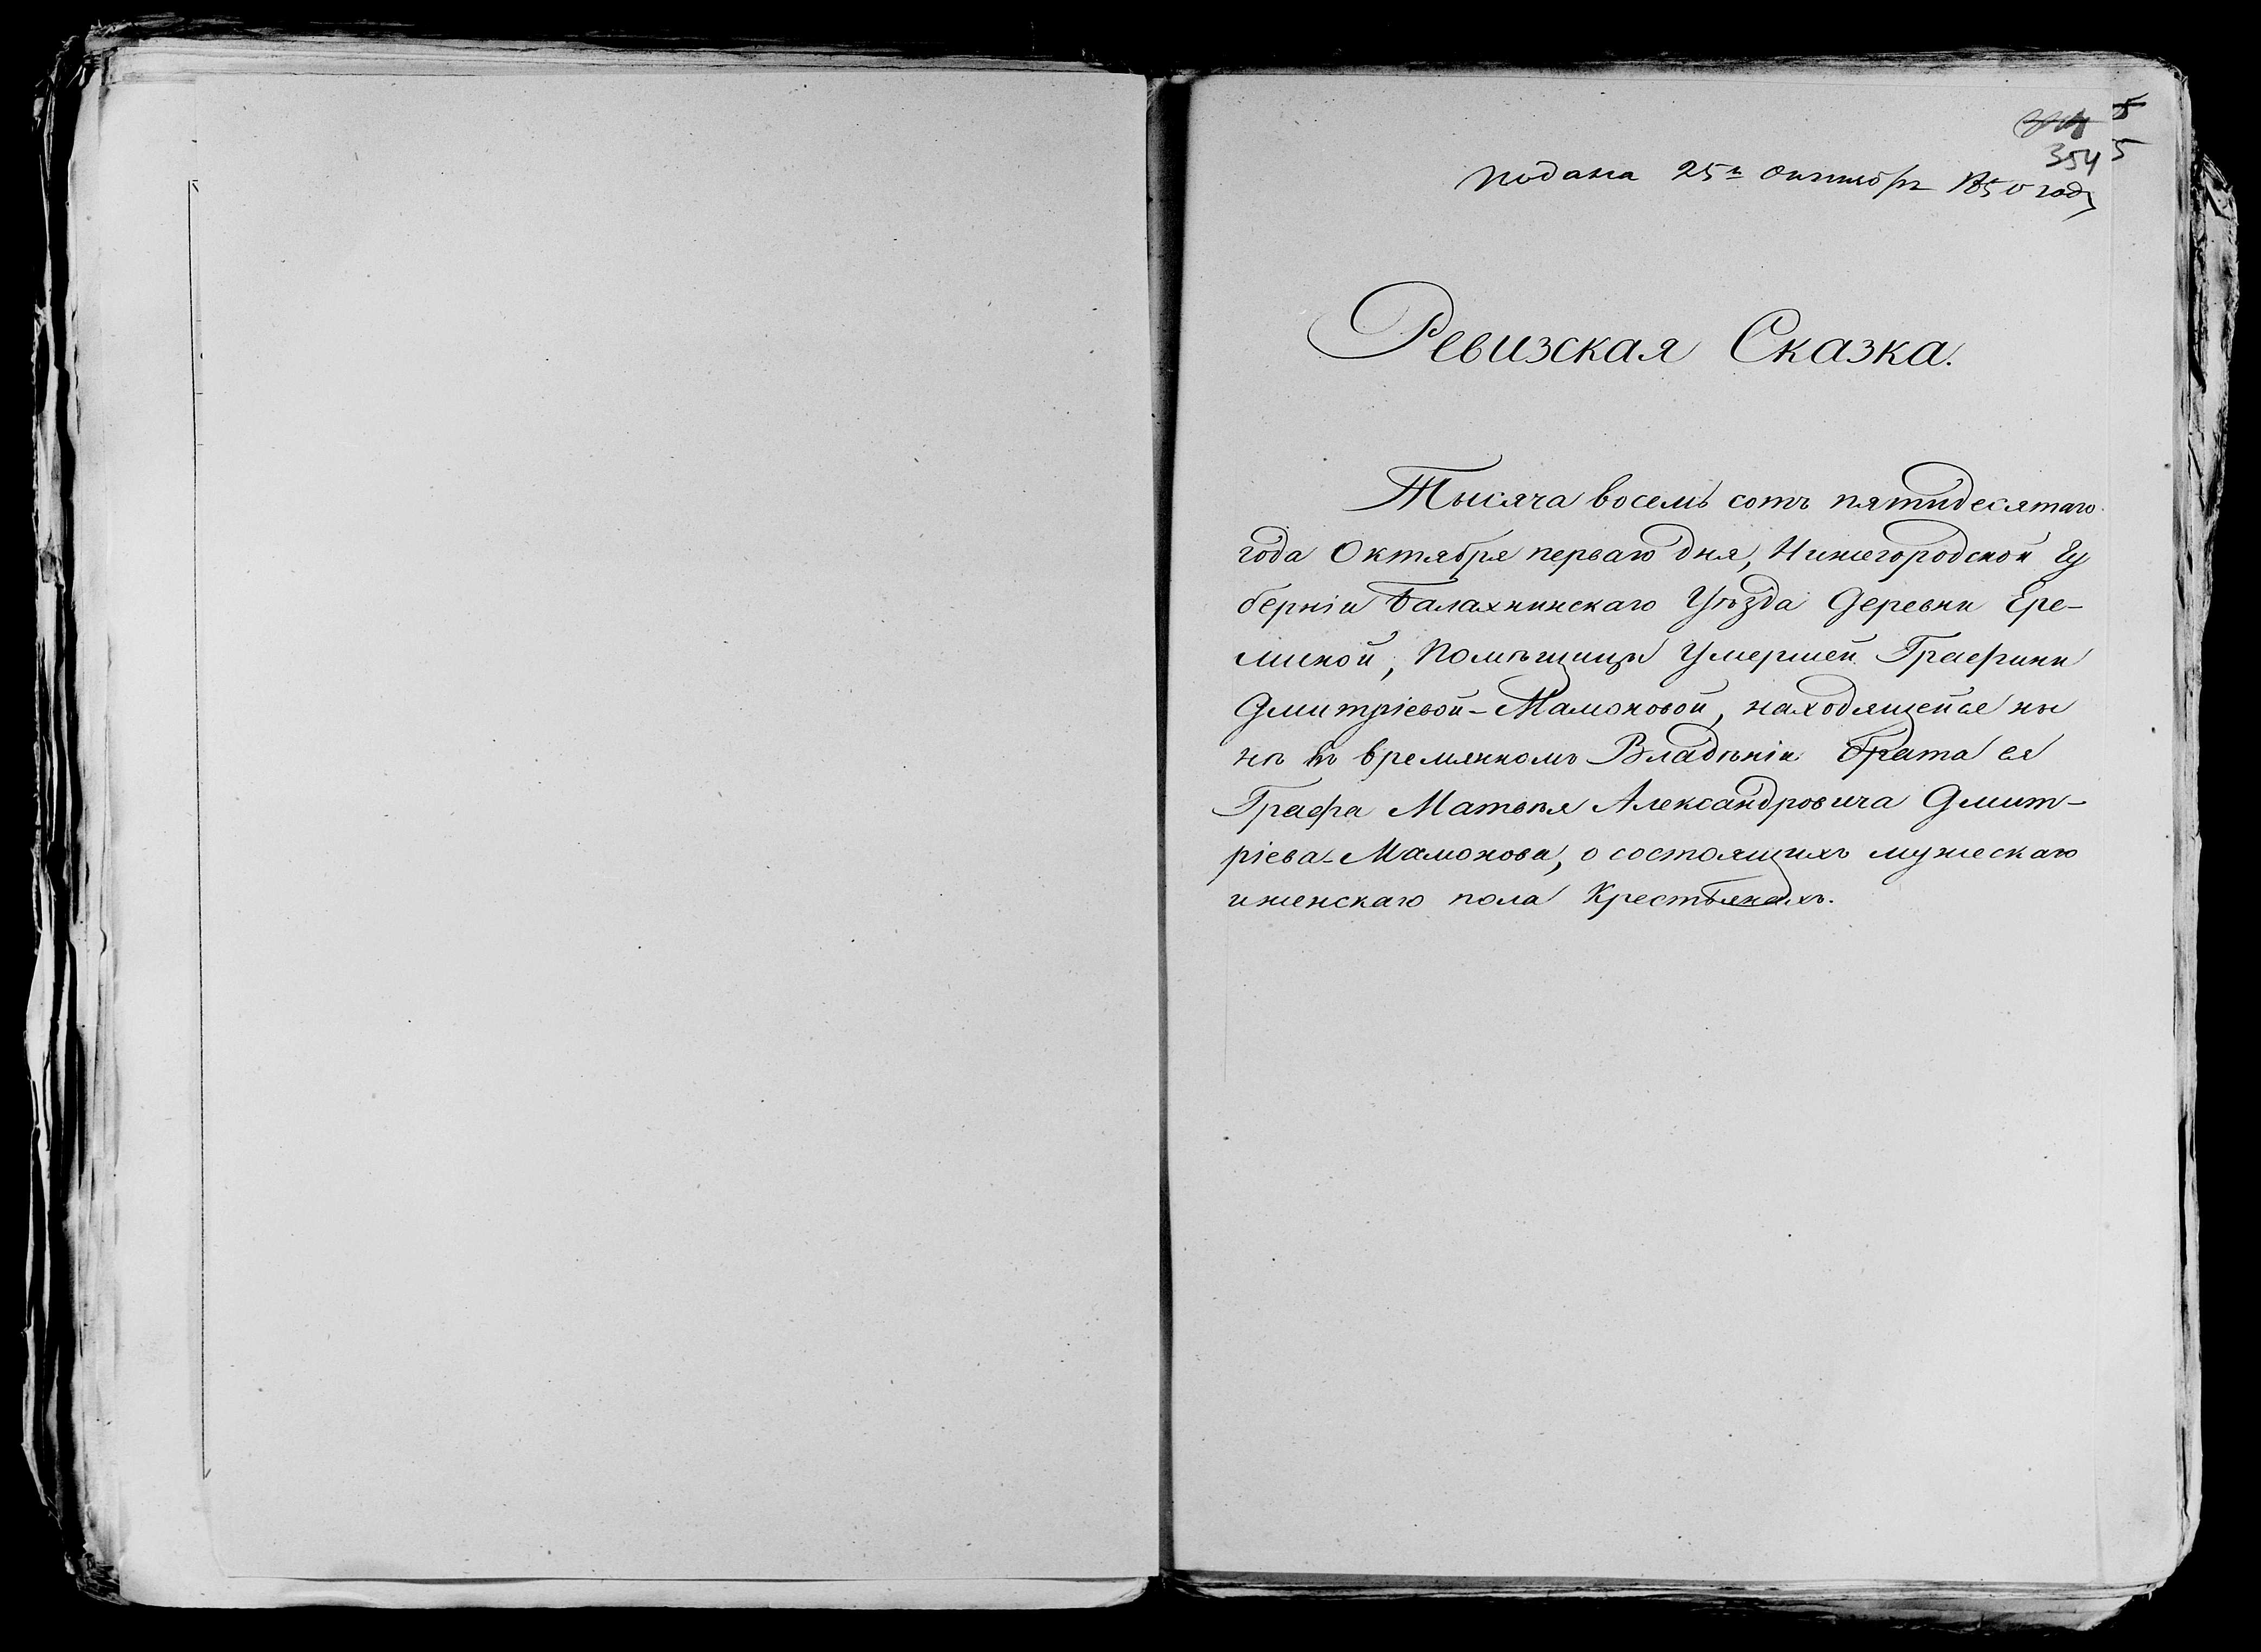 5
354 5
подана 25го октября 1850 году
Ревизская Сказка.
Тысяча восемь сотъ пятидесятаго
года Октября перваго дня, Нижегородской Гу
берніи Балахнинскаго Уѣзда Деревни Ере-
миной, Помѣщицы Умершей Графини
Дмитріевой-Мамоновой, находящейся ны
нѣ въ времянномъ Владѣніи брата ея
Графа Матвѣя Александровича Дмит-
ріева-Мамонова, о состоящихъ мужескаго
и женскаго пола Крестьянахъ.